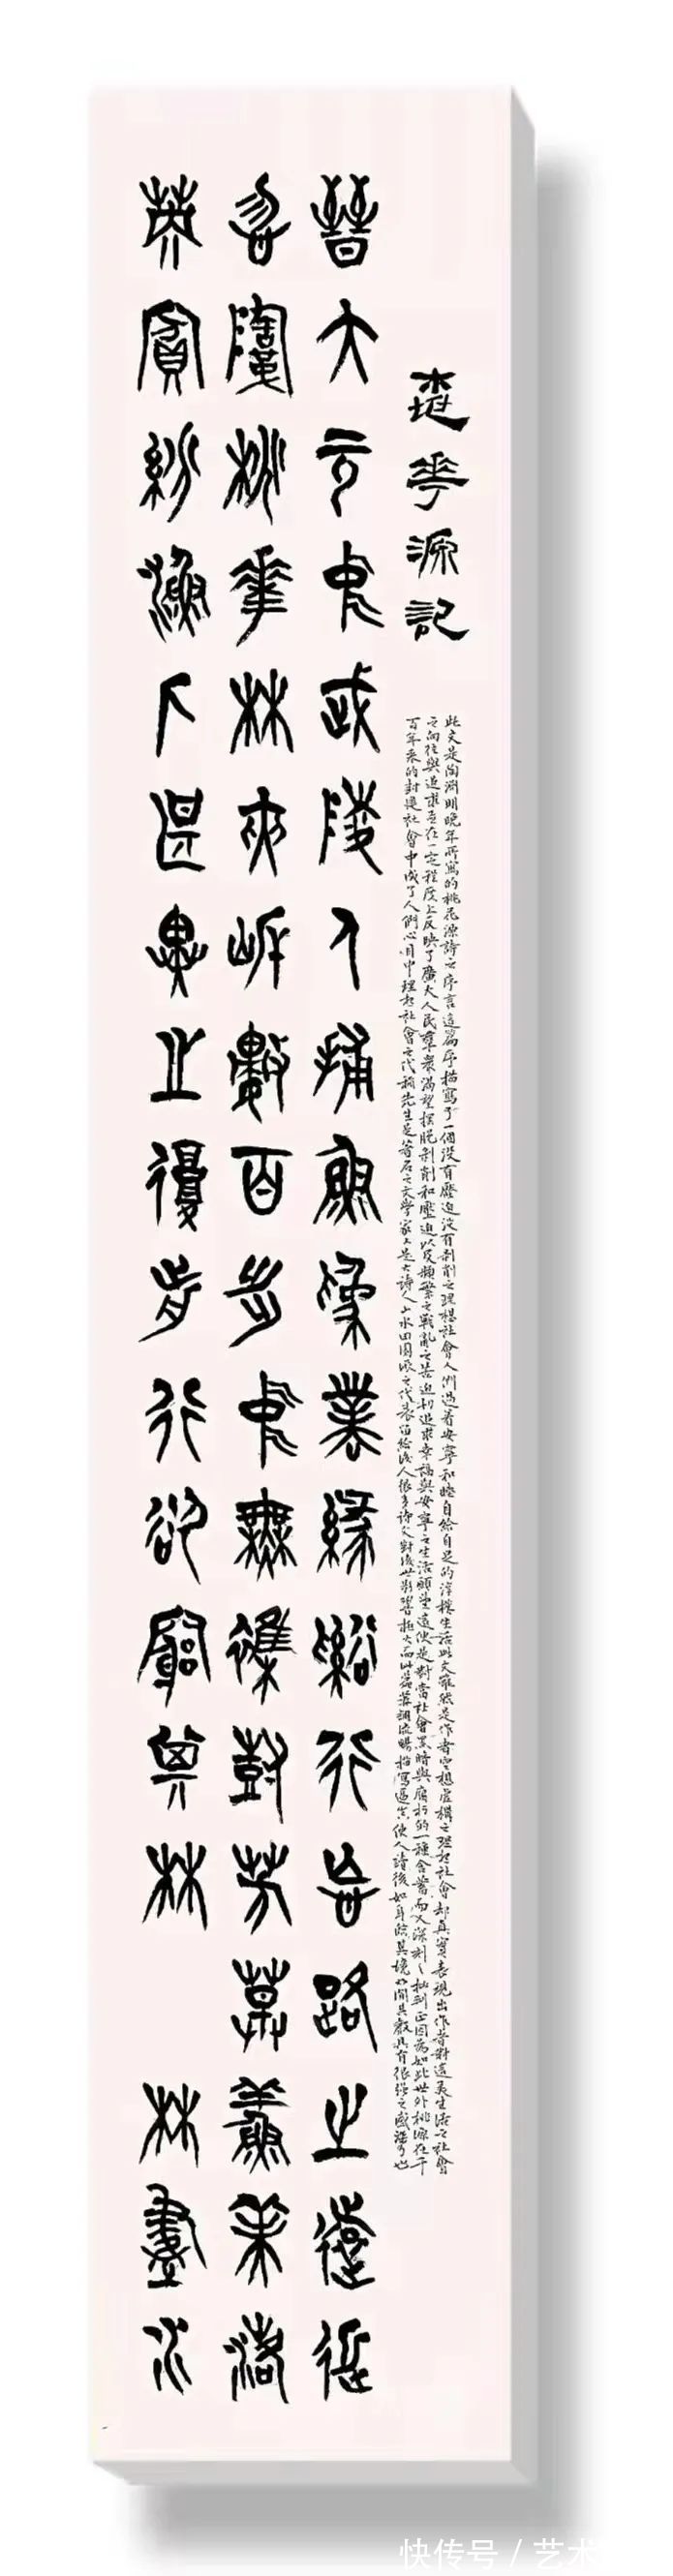 桃華源記
此文是陶淵明晚年所寫的桃花源詩之序言這篇序描寫了一個沒有壓迫沒有剝削之理想社會人們過着安寧和睦自給自足的淳樸生活此文雖然是作者空想虛構之理想社會却真實表現出作者對這美生活之社會
之向往與追求並在一定程度上反映了廣大人民羣衆渴望擺脫剝削和壓迫以及頻繁之戰亂之苦迫切追求幸福與安寧之生活願望這便是對當社會黑暗與腐朽的一種含蓄而又深刻之批判正因為如此世外桃源在千
百年来的封建社會中成了人們心目中理想社會之代稱先生是著名之文學家又是大詩人山水田園派之代表留給後人很多詩文對後世影響極大而此篇筆調流暢描寫逼真使人讀後如身臨其境如聞其聲具有很强之感染力也
晉大元中武陵人捕魚爲業緣谿行忘路之遠近
忽逢桃華林夾岸數百步中無雜樹芳草鮮美落
英賓紛漁人甚異之復前行欲窮其林 林盡水
快传号 / 艺术